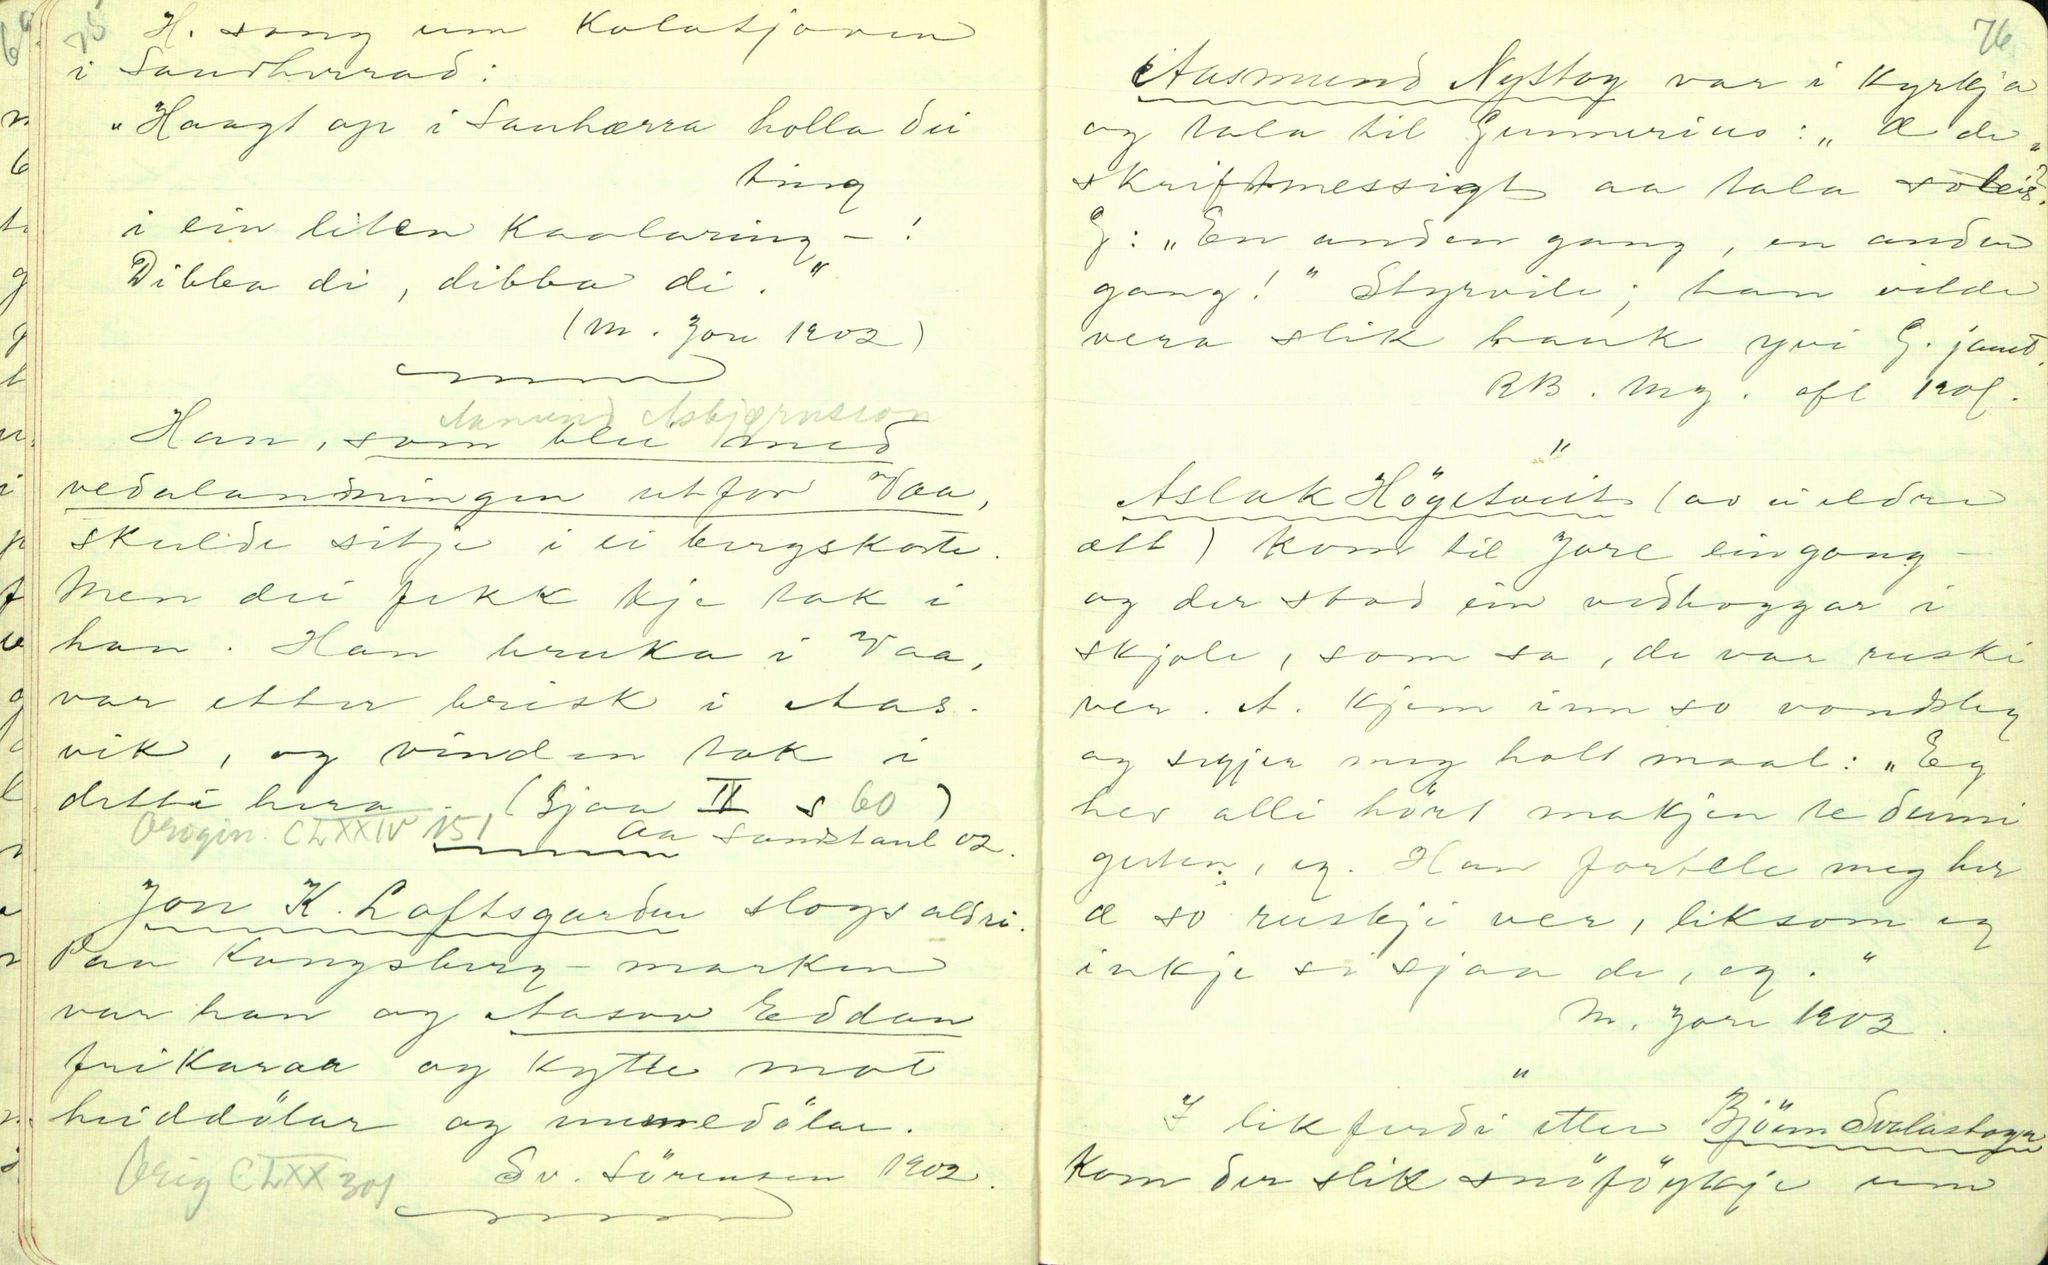 75
H. song um Kolatjoven
i Sandherrad:
"Haagt op i Sanhærra holla dei
ting
i ein liten Kaalaring – !
Dibba di, dibba di."
(M. Jore 1902)
Aanund Asbjørnsson
Han, som blei med
vedalandningen utfor Vaa,
skulde sitje i ei bergskorte.
Men dei fekk kje tak i
han. Han bruka i Vaa,
var etter brisk i Aas-
vik, og vinden tok i
dette hera. (Gjaa II s 60)
Origin. CLXXIV 151 Aa Sandstaul 02.
Jon K. Loftsgarden slogs aldri.
Paa Kongsberg-marken
var han og Aasov Eddan
frikarar og kytte mot
heiddölar og numedölar.
Orig CLXX 301 Sv. Sörensen 1902.
76
Aasmund Nystog var i Kyrkja
og tala til Gunnerius: "Æ de
skriftmessigt aa tala soleis?"
G: "En anden gang, en anden
gang!" Styrvile; han vilde
vera slik hauk yvi G. jamt.
RB. Mg. ofl 190.
"
Aslak Högetveit (av ei eldre
ætt) kom til Jore eingong –
og der stod ein vedhoggar i
skjole, som sa, de var ruski
ver. A. kjem inn so vondsleg
og segjer meg halt maal: "Eg
hev alli hört makjen te dumi
guten, eg. Han fortele meg her
æ so ruskji ver, liksom eg
inkje si sjaa de, eg."
M. Jore 1902.
"
I likferdi etter Björn Svalastoga
kom der slik snöföykje um